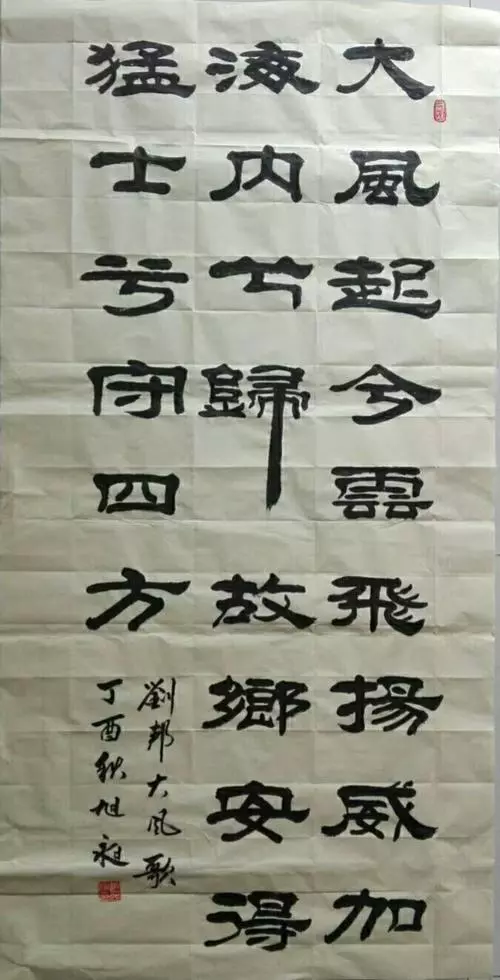 大風起今雲飛揚威加
海内兮歸故鄉安得
猛士兮守四方
劉邦大风歌
丁酉秋旭